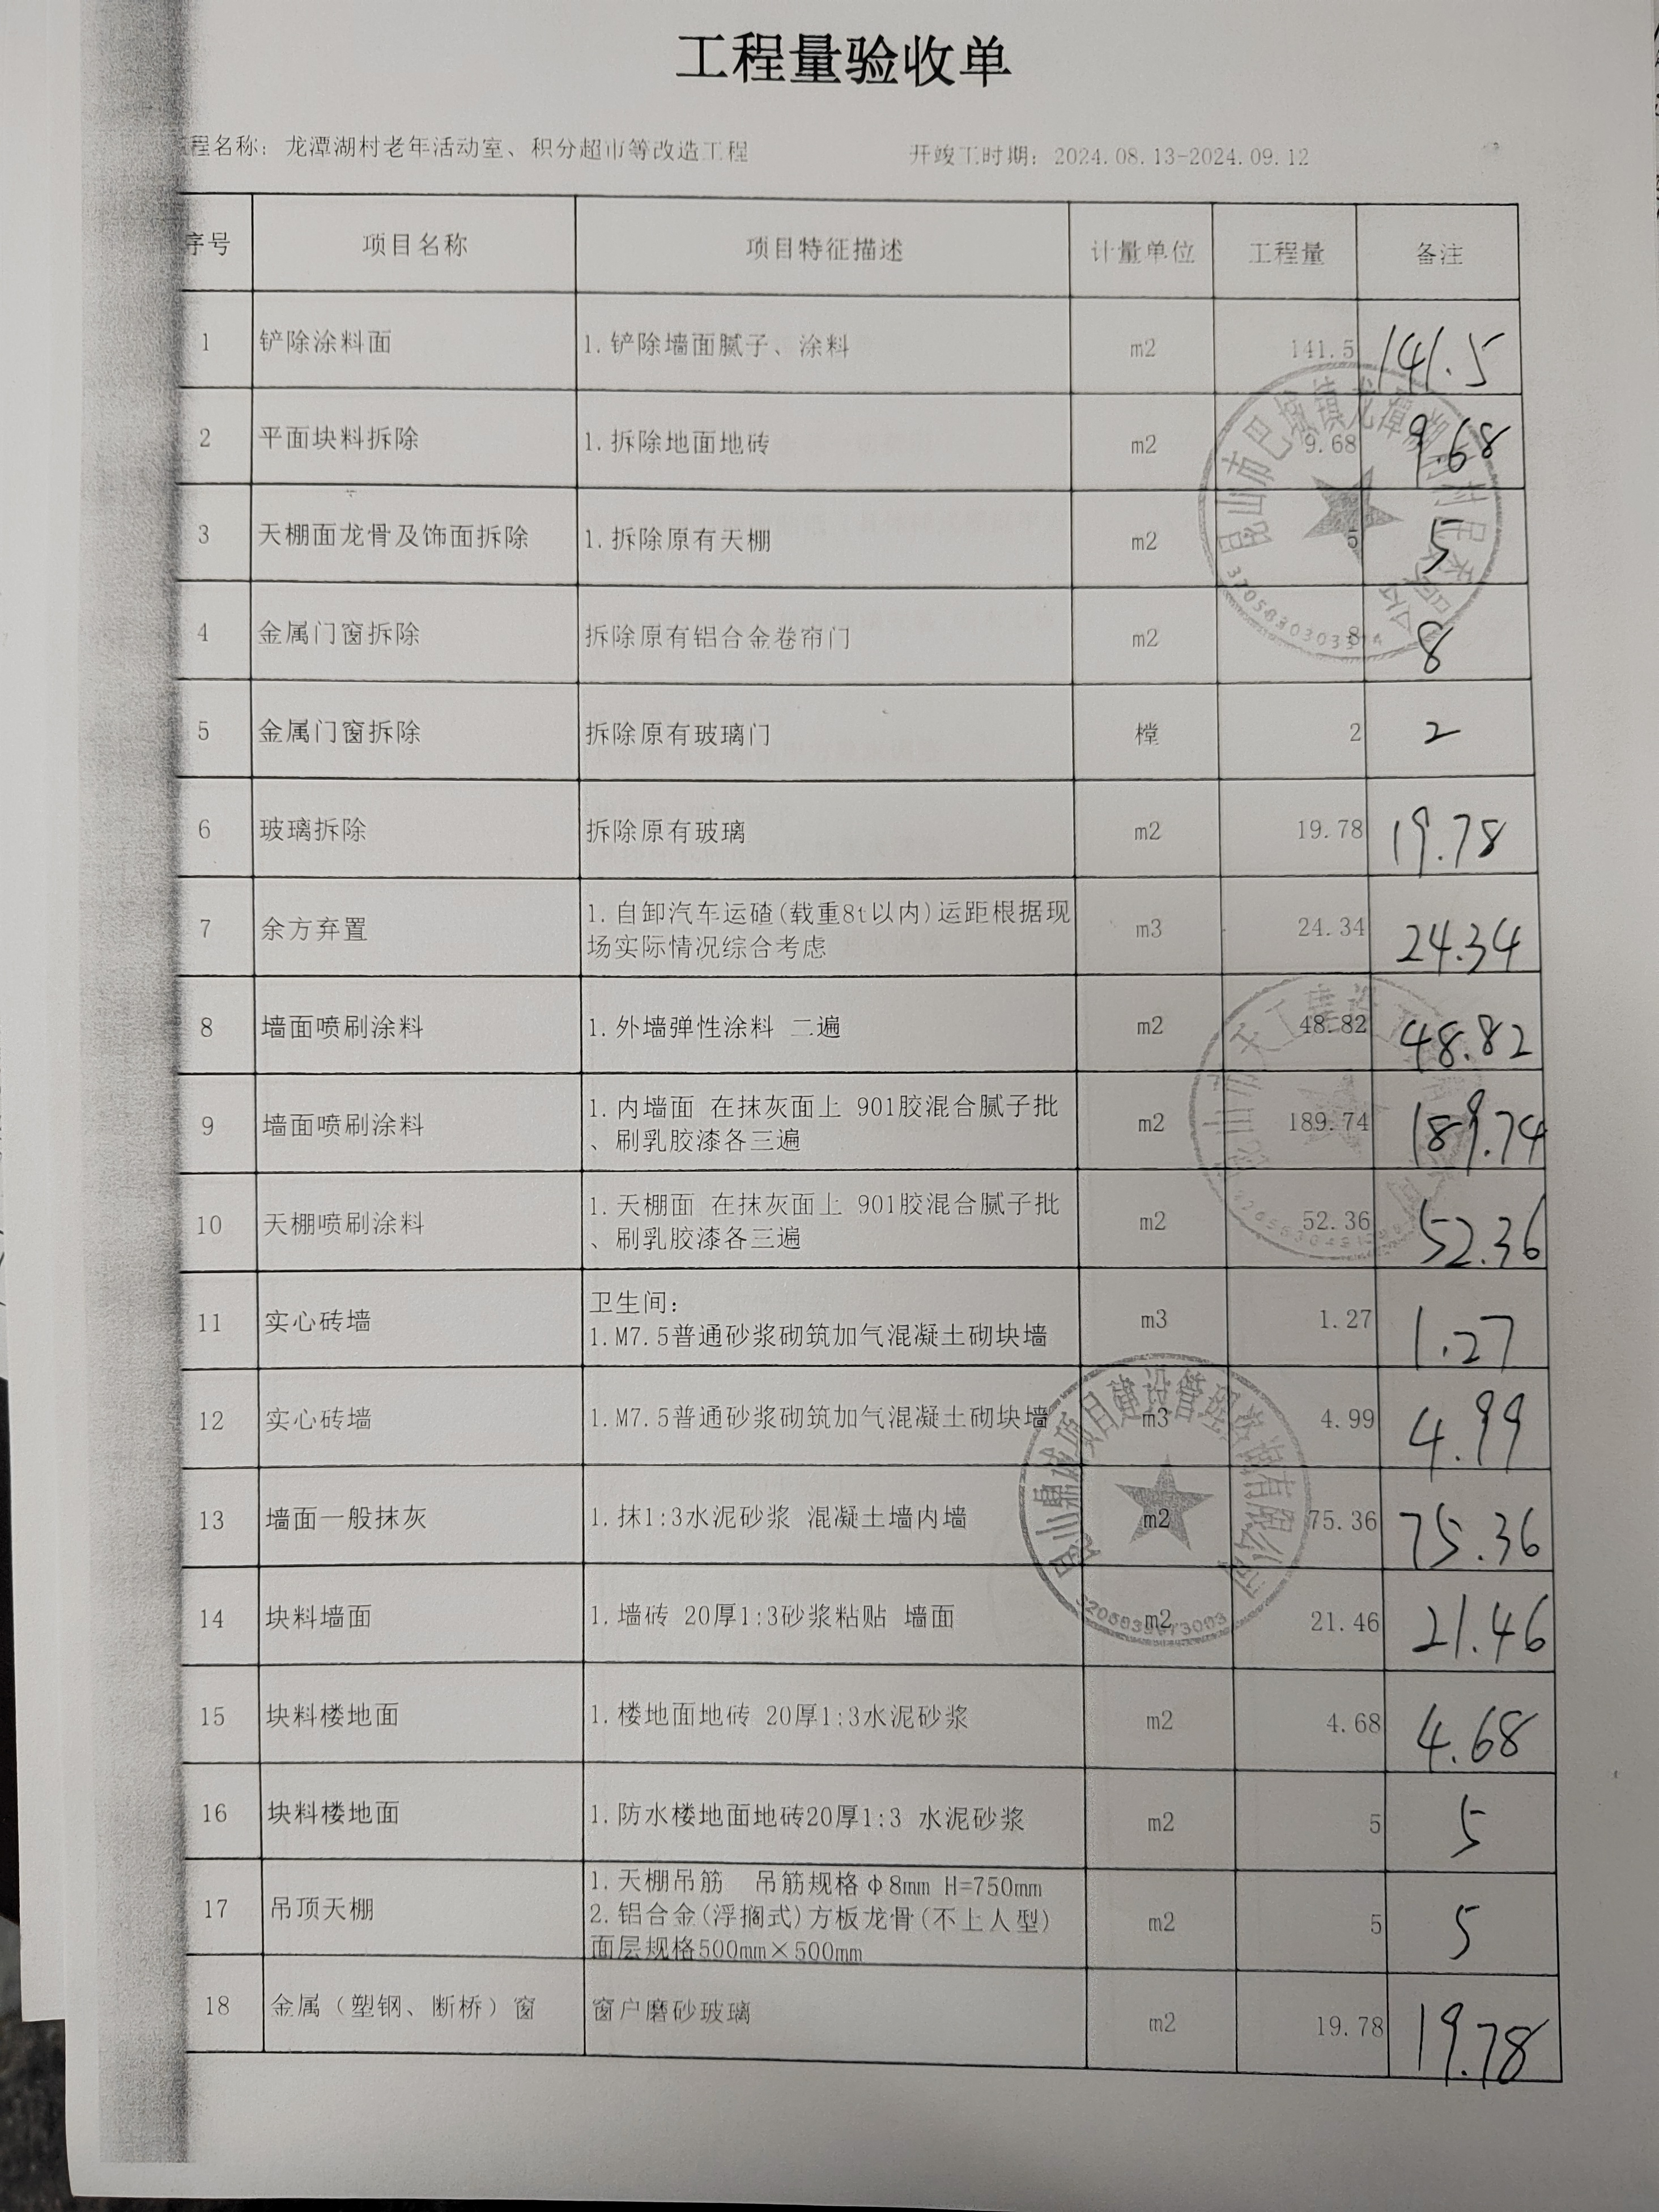 工程量验收单
程名称：龙潭湖村老年活动室、积分超市等改造工程 开竣工时期：2024.08.13-2024.09.12
序号 项目名称 项目特征描述 计量单位 工程量 备注
1 铲除涂料面 1.铲除墙面腻子、涂料 m2 141.5 141.5
2 平面块料拆除 1.拆除地面地砖 m2 9.68 9.68
3 天棚面龙骨及饰面拆除 1.拆除原有天棚 m2 5 5
4 金属门窗拆除 拆除原有铝合金卷帘门 m2 8 8
5 金属门窗拆除 拆除原有玻璃门 樘 2 2
6 玻璃拆除 拆除原有玻璃 m2 19.78 19.78
7 余方弃置 1.自卸汽车运碴(载重8t以内)运距根据现
场实际情况综合考虑 m3 24.34 24.34
8 墙面喷刷涂料 1.外墙弹性涂料 二遍 m2 48.82 48.82
9 墙面喷刷涂料 1.内墙面 在抹灰面上 901胶混合腻子批
、刷乳胶漆各三遍 m2 189.74 189.74
10 天棚喷刷涂料 1.天棚面 在抹灰面上 901胶混合腻子批
、刷乳胶漆各三遍 m2 52.36 52.36
11 实心砖墙 卫生间：
1.M7.5普通砂浆砌筑加气混凝土砌块墙 m3 1.27 1.27
12 实心砖墙 1.M7.5普通砂浆砌筑加气混凝土砌块墙 m3 4.99 4.99
13 墙面一般抹灰 1.抹1:3水泥砂浆 混凝土墙内墙 m2 75.36 75.36
14 块料墙面 1.墙砖 20厚1:3砂浆粘贴 墙面 m2 21.46 21.46
15 块料楼地面 1.楼地面地砖 20厚1:3水泥砂浆 m2 4.68 4.68
16 块料楼地面 1.防水楼地面地砖20厚1:3 水泥砂浆 m2 5 5
17 吊顶天棚 1.天棚吊筋 吊筋规格φ8mm H=750mm
2.铝合金(浮搁式)方板龙骨(不上人型)
面层规格500mm×500mm m2 5 5
18 金属（塑钢、断桥）窗 窗户磨砂玻璃 m2 19.78 19.78
昆山市巴城镇龙潭
昆山鼎诚项目建设管理咨询有限公司